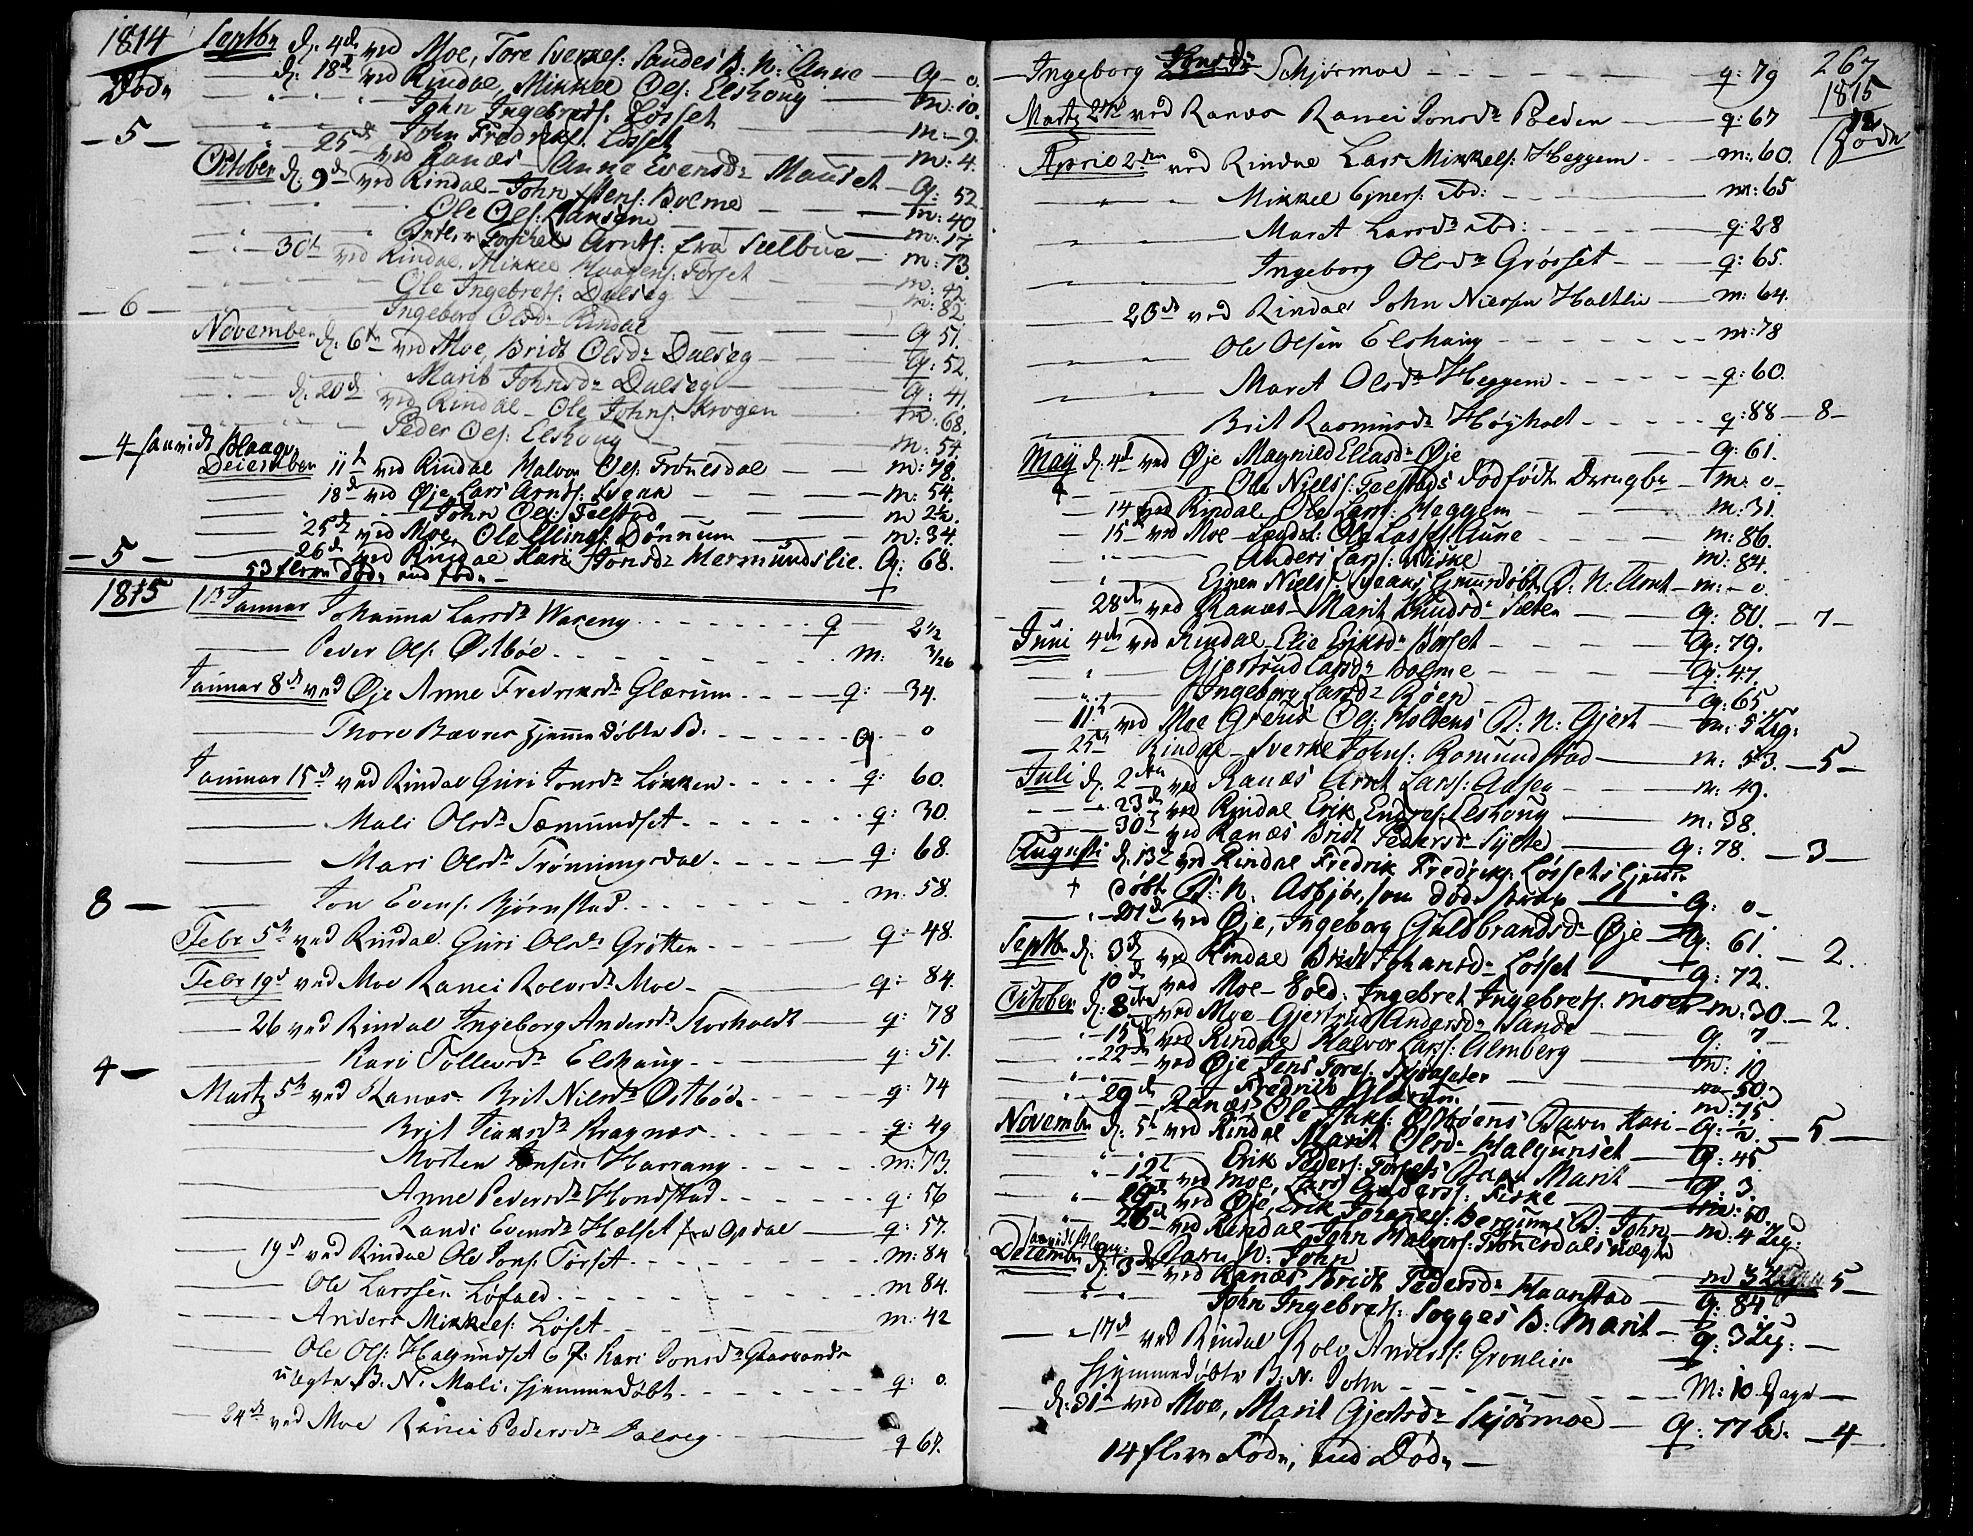 1814 Septbr d. 4de ved Moe, Tore Sverkes: Sandes B: N: Anne — Q — 0.
Døde — d: 18de ved Rindal, Mikkel Ols: Elshoug — m: 10.
John Ingebrets: Løsset — m: 9.
— 5 — 25de John Fredriks: Løsset — m: 4.
ved Ranæs Anne Evensdr Mauset — Q: 52.
October d. 9de ved Rindal — John Jens: Bolme — m: 40.
Ole Ols: Langøene — m: 17
Arnts: fra Selbue — m: 73.
30te ved Rindal. Mikkel Haagens: Torset — m: 42.
Ole Ingebrets: Dalseg — m: 82.
— 6 — Ingeborg Olsdr Rindal — Q 51.
November d: 6te ved Moe, Bridt Olsdr Dalseg — Q: 52.
Marit Johnsdr Dalseg — Q: 41.
d. 20de ved Rindal — Ole Johns: Krogen — m: 68.
Peder Ols: Elshoug — m. 54.
— 4 —
Deiember 11te ved Rindal Halvor Ols: Trønesdal — m: 78.
18de ved Øje Lars Arnts: Svean — m: 54.
John Ols: Telstad — m 2½.
25de ved Moe, Ole Ellings: Dønnum — m: 34.
— 5 — 26de ved Rindal Kari Jonsdr Mermundslie. Q: 68.
53 flere døde end fødte —
1815 1te Januar Johanna Larsdr Wareng — q 2½
Peder Ols. Østbøe — m: 3/26
Januar 8de ved Øje Anne Fredriksdr Glærum — q: 34.
Thore Bævres hjemme døbte B. — q — 0
Januar 15de ved Rindal Guri Jonsdr Løkken — q: 60.
Mali Olsdr Sæmundset — q: 30.
Mari Olsdr Trønningsdal — q: 68.
8 — Jon Evens. Bjørnstad — m: 58.
Febr 5te ved Rindal. Guri Olsdr Grøtten — q: 48.
Febr 19de ved Moe Ranei Rolvsdr Moe — q: 84.
26 ved Rindal Ingeborg Andersdr Storholdt — q: 78
4 — Kari Tollevsdr Elshaug — q: 51.
Martz 5te ved Ranæs Brit Nilsdr Østbøe — q: 74
Brit Kragnes — q: 49
Morten Jensen Harrang — m: 73.
Anne Pedersdr Hondstad — q: 56
Randi Evensdr Hælset fra Opdal — q: 57.
19de ved Rindal Ole Jons: Torset — m: 84
Ole Larssen Løfald — m 84.
Anders Mikkels: Løset — m: 42
Ole Ols: Halgundset og Kari Jonsdr
uægte B: N: Mali. hjemmedøbt — q: 0.
24de ved Moe Ranei Pedersdr Dalseg — q 67.
267
Ingeborg Jonsdr Schjørmoe — q: 79 1815
Martz 27de ved Ranæs Ranei Jonsdr Bolden — q: 67 Døde
Aprio 2den ved Rindal Lars Mikkels: Heggem — m: 60.
Mikkel Ejners: ibd: — m: 65
Maret Larsdr ibd: — q: 28
Ingeborg Olsdr Grøsset — q: 65.
23de ved Rindal John Nielsen Holtlie — m: 64.
Ole Olsen Elshaug — m: 78
Maret Olsdr Heggem — q: 60.
Brit Rasmusdr Høyholt — q: 88 — 8 —
May d. 4de ved Øje Magnild Eliasdr Øje — Q: 61.
Ole Niels: Telstads dødfødte Drengbr — m: 0.
14 ved Rindal Ole Lars: Heggem — m. 31.
15de ved Moe — Ole Lasses: Aune — m: 86.
Anders Lars: Miske — m: 84.
Ejnen Niels: Hjemmedøbt B. N. Arnt — m: 0
28de ved Ranæs Marit Knudsdr Sæter — Q: 80. — 7 —
Juni 4de ved Rindal Elie Eriksdr Børset — Q: 79.
Gjertrud Larsdr Bolme — Q: 47.
Ingeborg Larsdr Bøen — Q: 65
11te ved Moe Ols: Holtens B: N: Gjert — m: 5 Ug:
25de Rindal — Sverke Johns: Romundstad — m: 53. — 5 —
Juli d. 2den ved Ranæs Arnt Lars: Aaseg — m: 49.
23de ved Rindal Erik Endres: Elshoug — m: 38.
30te ved Ranæs Bridt Pedersdr Sylte — Q: 78. — 3 —
Augusti d. 13de ved Rindal Fredrik Fredriks: Løssets hjemme
døbt B: N: Asbjør, som døde strax — Q: 0 —
27de ved Øje, Ingeborg Guldbrandsdr Øje — Q: 61. — 2.
Septbr d: 3de ved Rindal Bridt Johansdr Løsset — Q: 72.
10de ved Moe — Sold: Ingebret Ingebrets: moe — m: 30. — 2.
October d: 8de ved Moe — Gjertrud Andersdr Sande — Q: 7 —
15de ved Rindal Halvor Lars: Almberg — m: 10
22de ved Øje Jens Tores: — m 50.
Fredrich Glærum — m: 75.
29de Ranæs Ole Østbøens Barn Kari — Q: ½. — 5 —
Novembr d: 5te ved Rindal Marit Olsdr Halgunset — Q: 45
Erik Peders: Torsets Barn Marit — Q: 3.
12te ved moe, Lars Anders: Fiske — m: 10.
20de ved Øje, Erik Bergums B: John — m: 4 Ug:
26de ved Rindal John Halvors: Trønesdals uægte
Barn N: John — m 3 Ug — 5 —
Deiembr d: 3de ved Ranæs Bridt Pedersdr Haanstad — Q: 84
John Ingebrets: Sogges B: Marit — Q: 3 Ug: —
17de ved Rindal Rolv Anders: Gronlien
hjemmedøbte B: N: John — M: 10 Dage —
d: 31te ved Moe, Marit Gjertsdr Skjørmoe — Q: 77 — 4 —
14 flere Fødte, end Døde —